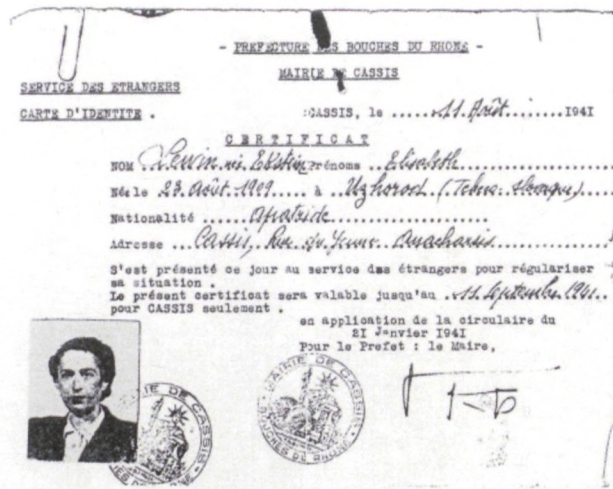 - PREFECTURE DES BOUCHES DU RHONE -
MAIRIE DE CASSIS
SERVICE DES ETRANGERS
CARTE D'IDENTITE .
CASSIS, le ......11 Août....... 1941
CERTIFICAT
NOM Lewin née Ekstein Prénoms Elisabeth
Née le 23 août 1909..... à Uzhorod (Tchéco-slovaquie)
Nationalité ...... Apatride ....................
Adresse ... Cassis, Rue du Jeune Anacharsis
S'est présenté ce jour au service des étrangers pour régulariser
sa situation .
Le présent certificat sera valable jusqu'au ..11 Septembre 1941..
pour CASSIS seulement .
en application de la circulaire du
21 Janvier 1941
Pour le Prefet : le Maire,
MAIRIE DE CASSIS
BOUCHES DU RHONE
MAIRIE DE CASSIS